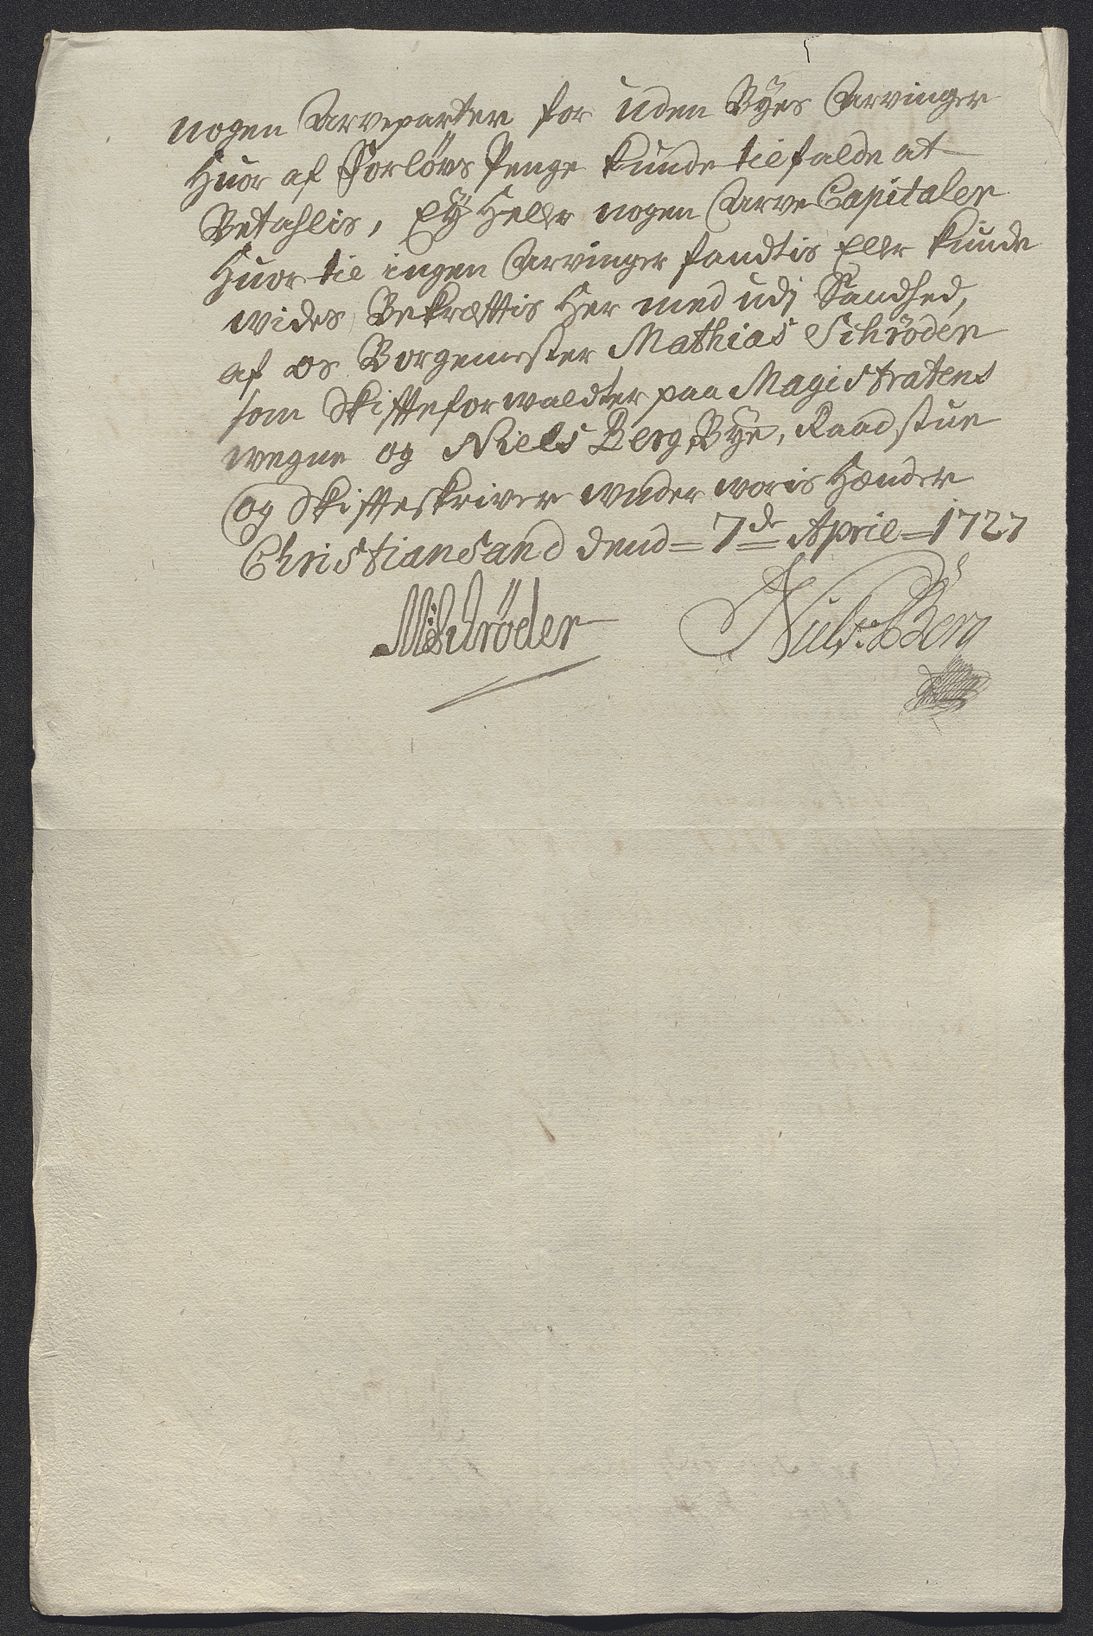 nogen Arveparter for uden Byes Arvinger
Huor af Forlovs Penge kunde tilfalde at
Betahlis, Ey Heller nogen Arve Capitaler
Huor til ingen Arvinger fandtis Eller kunde
wides, Bekræftis Her med udj Sandhed,
af os Borgemester Mathias Schrøder
som Skifteforwaldter paa Magistratens
wegne og Niels Berg, Bye, Raadstue
og Skifteskriver under woris Hænder
Christiansand dend 7de April 1727
MSchrøder Niels Berg